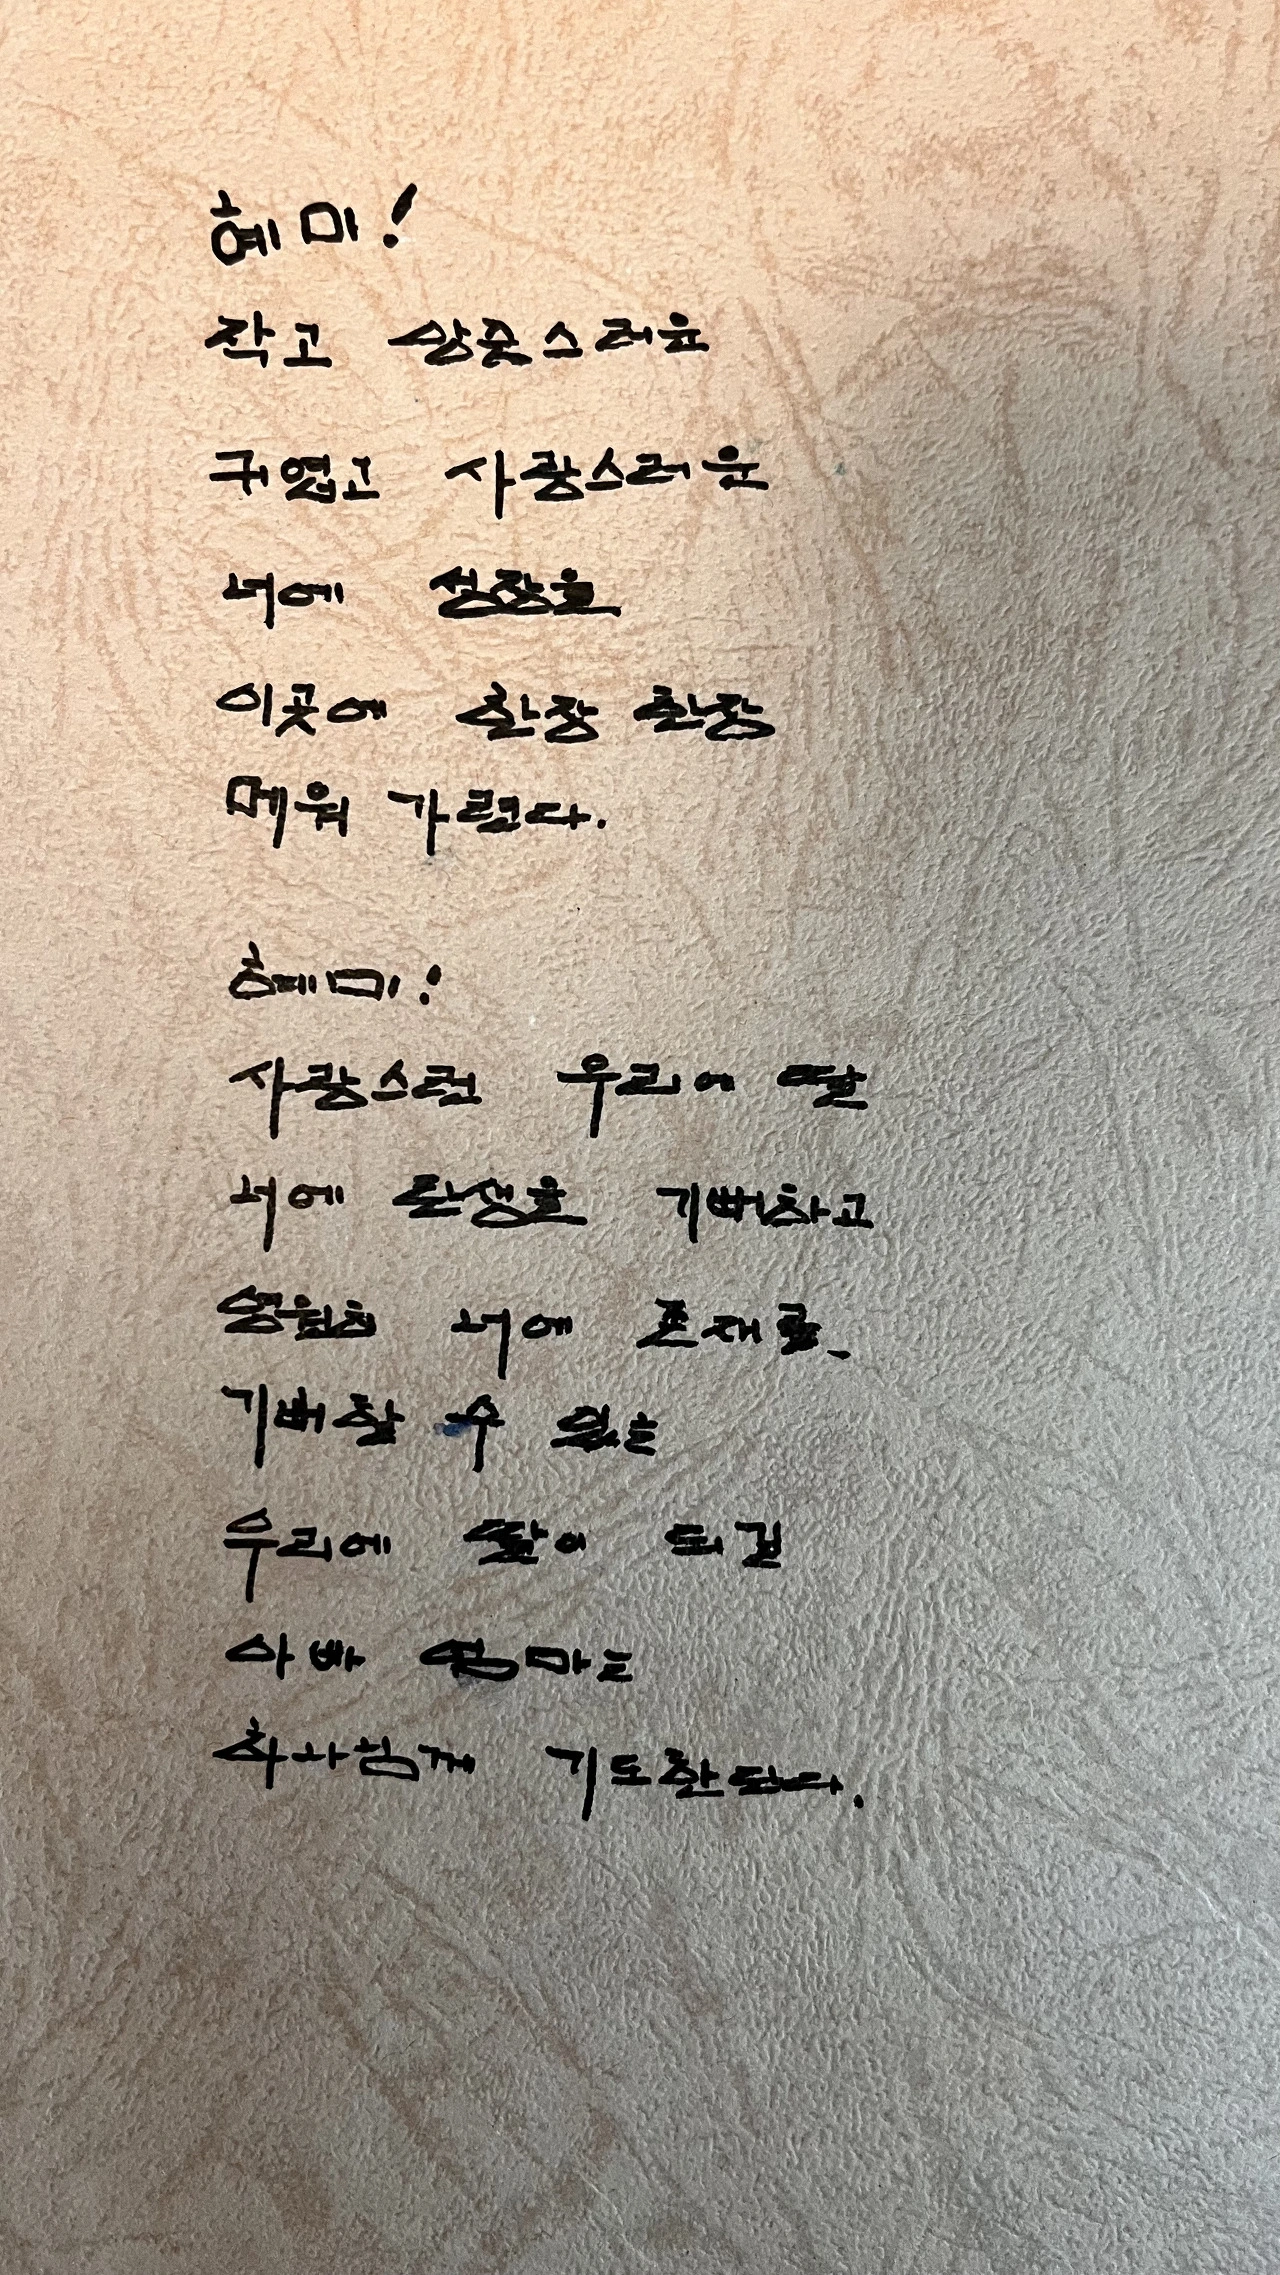 혜미!
작고 앙증스러운
귀엽고 사랑스러운
너에 성장을
이곳에 한장 한장
메워 가련다.
혜미!
사랑스런 우리에 딸
너에 탄생을 기뻐하고
영원히 너에 존재를
기뻐할 수 있는
우리에 딸이 되길
아빠 엄마는
하나님께 기도한단다.